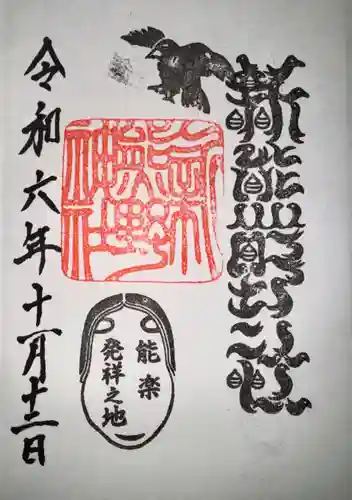 新熊野神社
能楽
発祥之地
令和六年十一月十二日